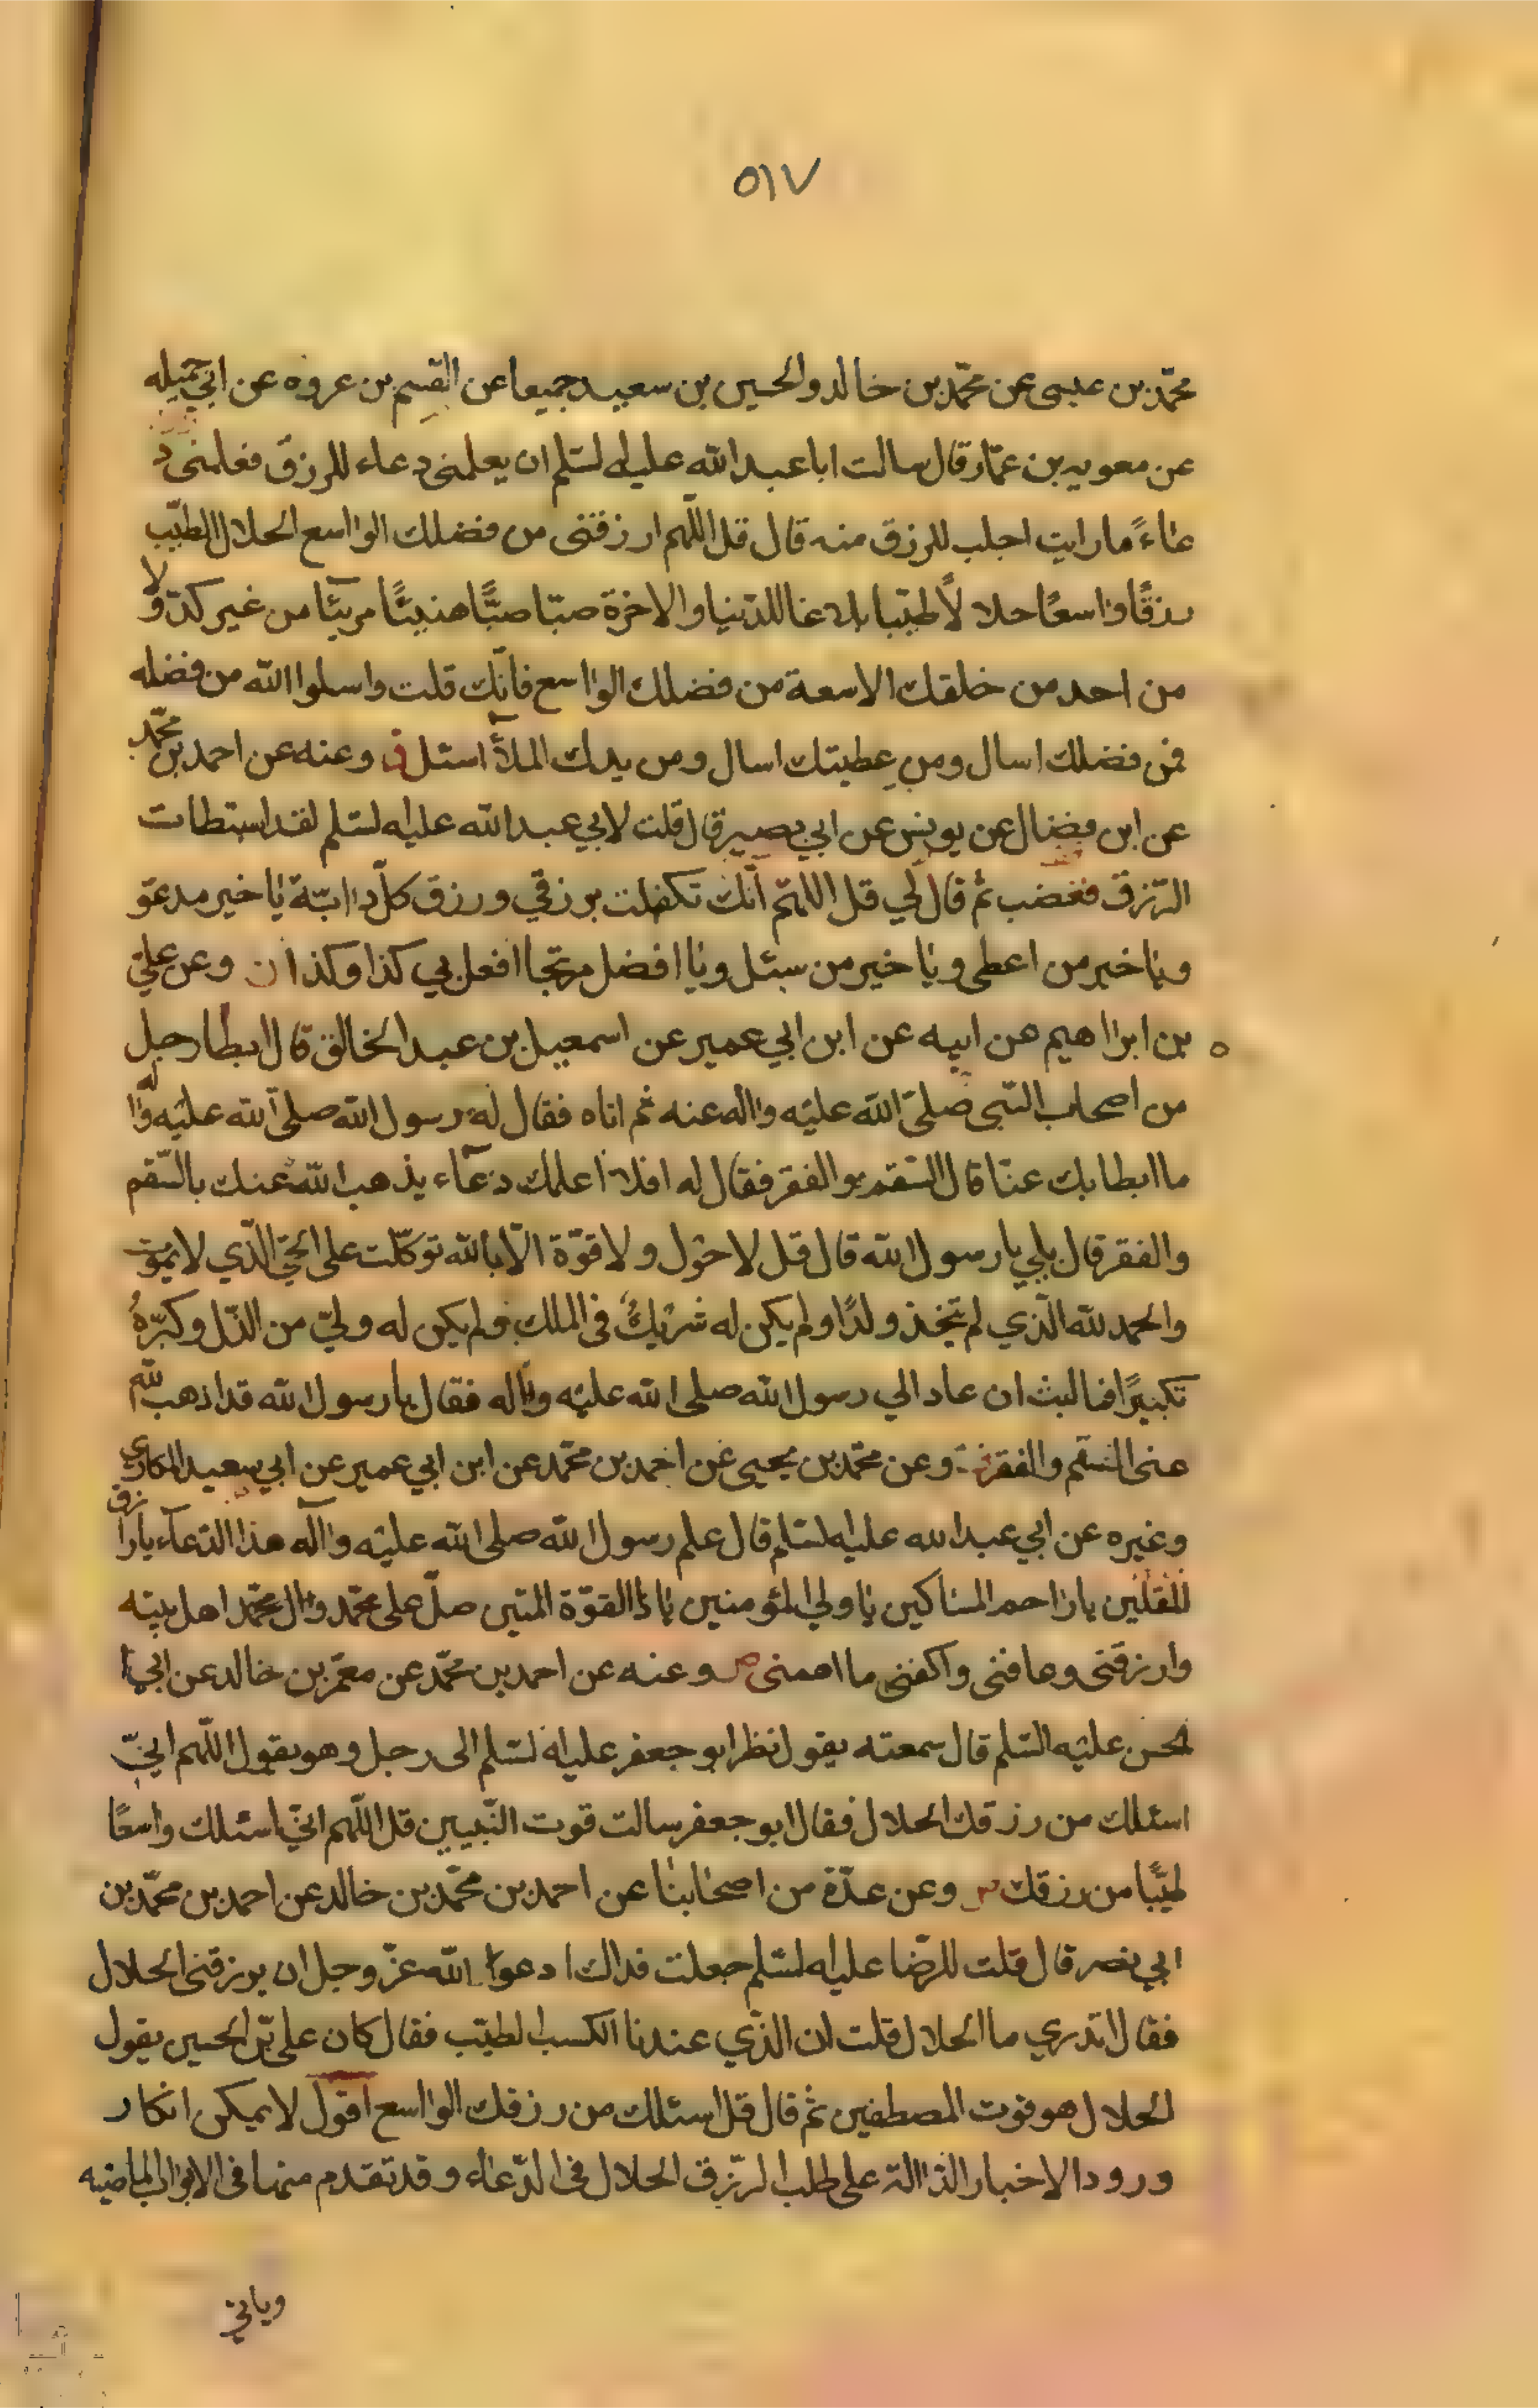 ٥١٧
محمّد بن عيسى عن محمّد بن خالد والحسين بن سعيد جميعا عن القسم بن عروه عن ابي جميله
عن معويه بن عمّار قال سالت ابا عبد الله عليه لسّلم ان يعلمنى دعاء للرزق فعلمنى د
عاءً ما رايت اجلب للرزق منه قال قل اللّهم ارزقنى من فضلك الواسع الحلال الطيّب
رزقًا واسعًا حلالًا طيّبا بلاغا للدّنيا والاخرة صبّا صبًّا هنيئًا مريئا من غير كدّ ولا
من احد من خلقك الا سعة من فضلك الواسع فانّك قلت واسلوا الله من فضله
فمن فضلك اسال ومن عطيتك اسال ومن يدك الملأ اسئل وعنه عن احمد بن محمّد
عن ابن فضال عن يونس عن ابي بصير قال قلت لابي عبد الله عليه لسّلم لقد استبطات
الرّزق فغضب ثم قال لي قل اللهّم انّك تكفلت برزقي ورزق كلّ دابّة يا خير مدعوّ
ويا خير من اعطى ويا خير من سئل ويا افضل مرتجا افعل بي كذا وكذا ن وعن علىّ
بن ابراهيم عن ابيه عن ابن ابي عمير عن اسمعيل بن عبد الخالق قال ابطا رجل
من اصحاب النّبى صلىّ الله عليه واله عنه ثم اتاه فقال له رسول الله صلى الله عليه واله
ما ابطا بك عنّا قال السّقم والفقر فقال له افلا اعلمك دعآء يذهب الله عنك بالسّقم
والفقر قال بلي يا رسول الله قال قل لا حول ولا قوّة الّا بالله توكّلت على الحيّ الّذي لا يموت
والحمد لله الّذي لم يتّخذ ولدًا ولم يكن له شريكٌ فى الملك ولم يكن له وليّ من الذّل وكبّرهُ
تكبيرًا فما لبث ان عاد الي رسول الله صلى الله عليه واله فقال يا رسول الله قد اذهب الله
عنى السّقم والفقر وعن محمّد بن يحيى عن احمد بن محمّد عن ابن ابي عمير عن ابي سعيد المكارى
وغيره عن ابي عبد الله عليه لسّلم قال علم رسول الله صلى الله عليه وآله هذا الدّعآء يا رازق
المقلّين يا راحم المساكين يا ولي المؤمنين يا ذا القوّة المتين صلّ على محمّد وال محمّد اهل بيته
وارزقنى وعافنى واكفنى ما اهمنى ص وعنه عن احمد بن محمّد عن معمّر بن خالد عن ابي ا
لحسن عليه السّلم قال سمعته يقول نظر ابو جعفر عليه لسّلم الى رجل وهو يقول اللّهم انيّ
اسئلك من رزقك الحلال فقال ابو جعفر سالت قوت النّبيين قل اللّهم انّي اسئلك واسعًا
طيّبًا من رزقك وعن عدّة من اصحابنا عن احمد بن محمّد بن خالد عن احمد بن محمّد بن
ابي نصر قال قلت للرّضا عليه لسّلم جعلت فداك ادعوا الله عزّ وجل ان يرزقنى الحلال
فقال اتدري ما الحلال قلت ان الذّي عندنا الكسب الطيّب فقال كان علي بن الحسين يقول
الحلال هو قوت المصطفين ثم قال قل اسئلك من رزقك الواسع اقول لا يمكن انكار
ورود الاخبار الدّالة على طلب الرّزق الحلال فى الدّعاء وقد تقدم منها فى الابواب الماضيه
وياتي